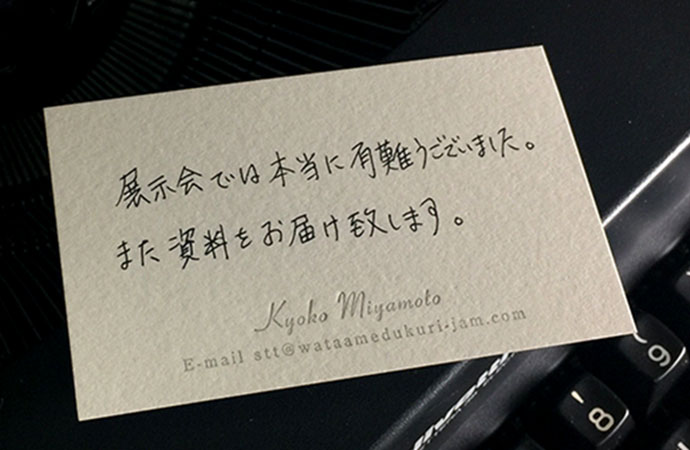 展示会では本当に有難うございました。
また資料をお届け致します。
Kyoko Miyamoto
E-mail stt@wataamedukuri-jam.com
9
8